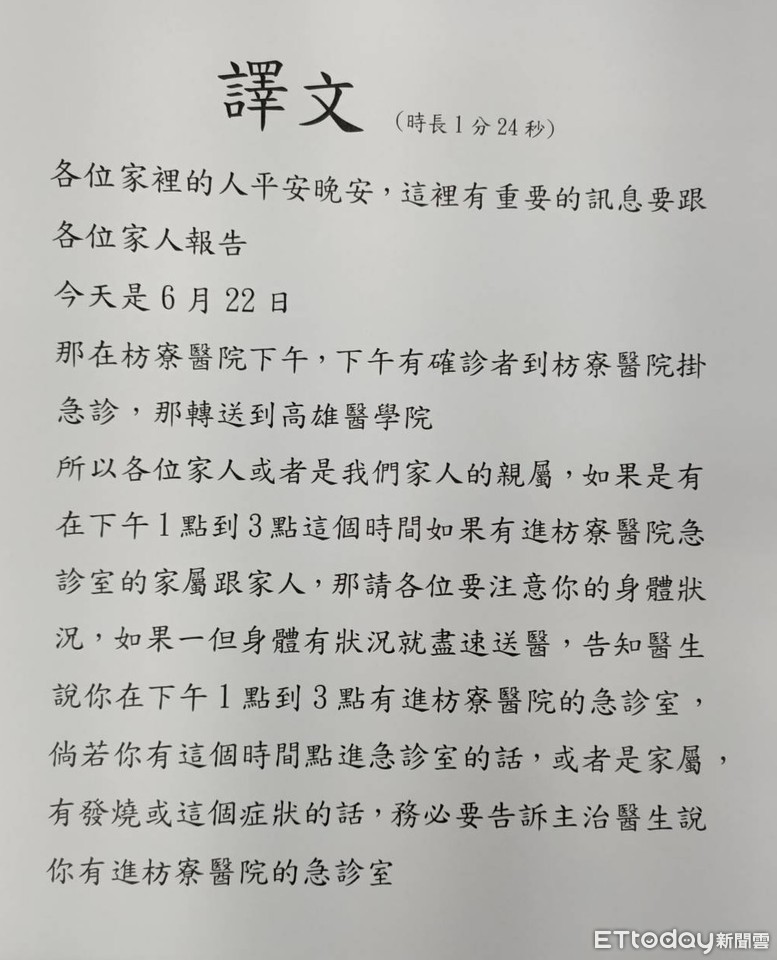 譯文 （時長1分24秒）
各位家裡的人平安晚安，這裡有重要的訊息要跟
各位家人報告
今天是6月22日
那在枋寮醫院下午，下午有確診者到枋寮醫院掛
急診，那轉送到高雄醫學院
所以各位家人或者是我們家人的親屬，如果是有
在下午1點到3點這個時間如果有進枋寮醫院急
診室的家屬跟家人，那請各位要注意你的身體狀
況，如果一但身體有狀況就盡速送醫，告知醫生
說你在下午1點到3點有進枋寮醫院的急診室，
倘若你有這個時間點進急診室的話，或者是家屬，
有發燒或這個症狀的話，務必要告訴主治醫生說
你有進枋寮醫院的急診室
ETtoday新聞雲